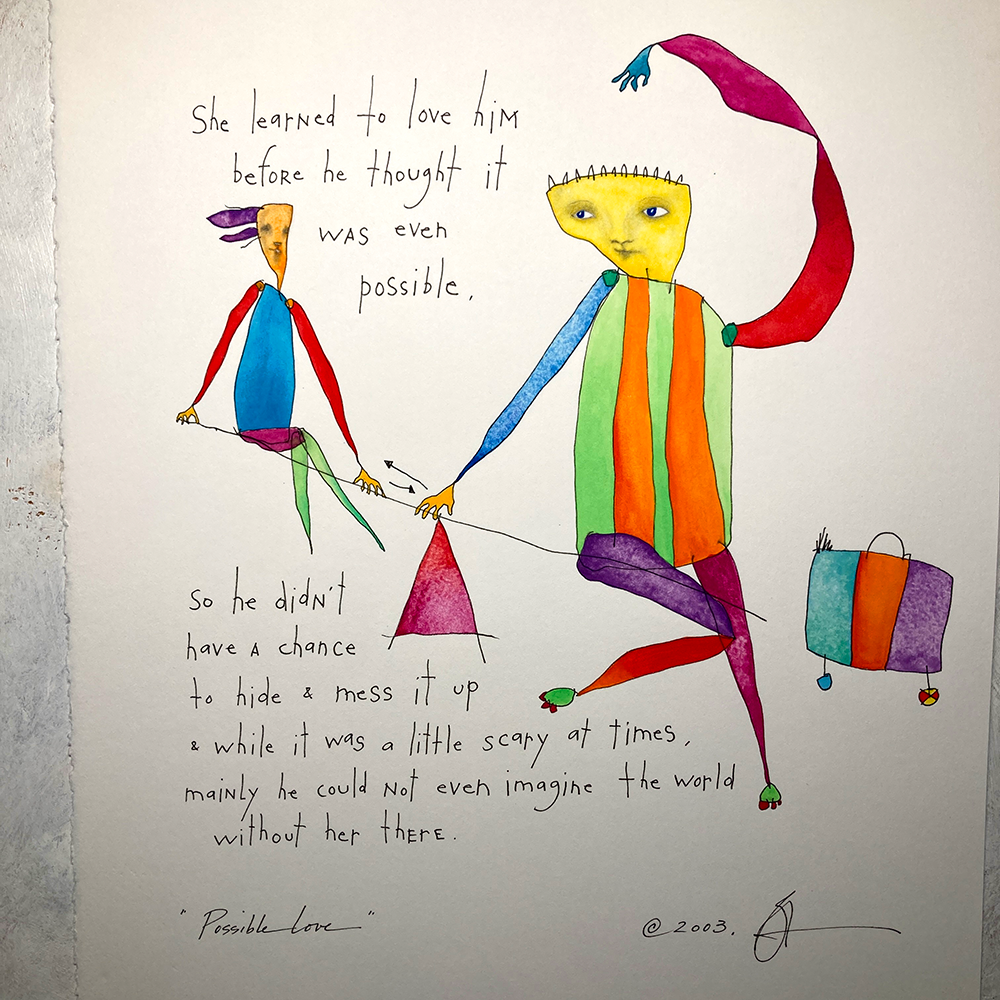 She learned to love him
before he thought it
was even
possible,
so he didn't
have a chance
to hide & mess it up
& while it was a little scary at times,
mainly he could not even imagine the world
without her there.
"Possible Love"
© 2003.